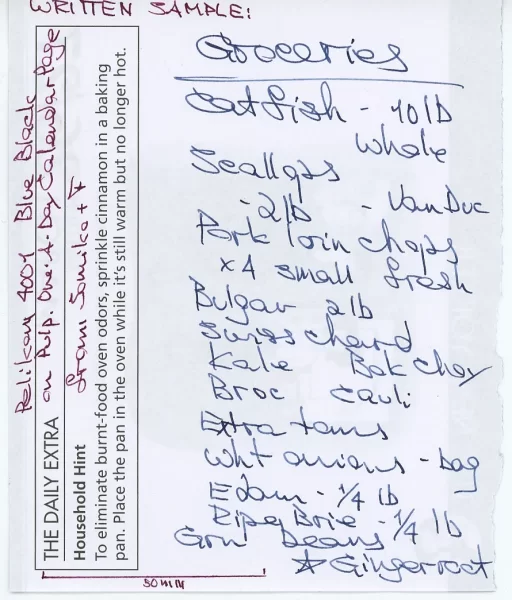 WRITTEN SAMPLE:
Pelikan 4001 Blue Black
on Pulp. One-A-Day Calendar Page
THE DAILY EXTRA
Household Hint
To eliminate burnt-food oven odors, sprinkle cinnamon in a baking
pan. Place the pan in the oven while it's still warm but no longer hot.
50 mm
Groceries
Catfish - 10 lb
whole
Scallops
- 2 lb - VanDuc
Pork loin chops
x4 small fresh
Bulgar 2 lb
Swiss chard
Kale Bok choy
Broc cauli
Extra toms
Wht onions - bag
Edam - 1/4 lb
Ripe Brie - 1/4 lb
Grn beans
* Gingerroot